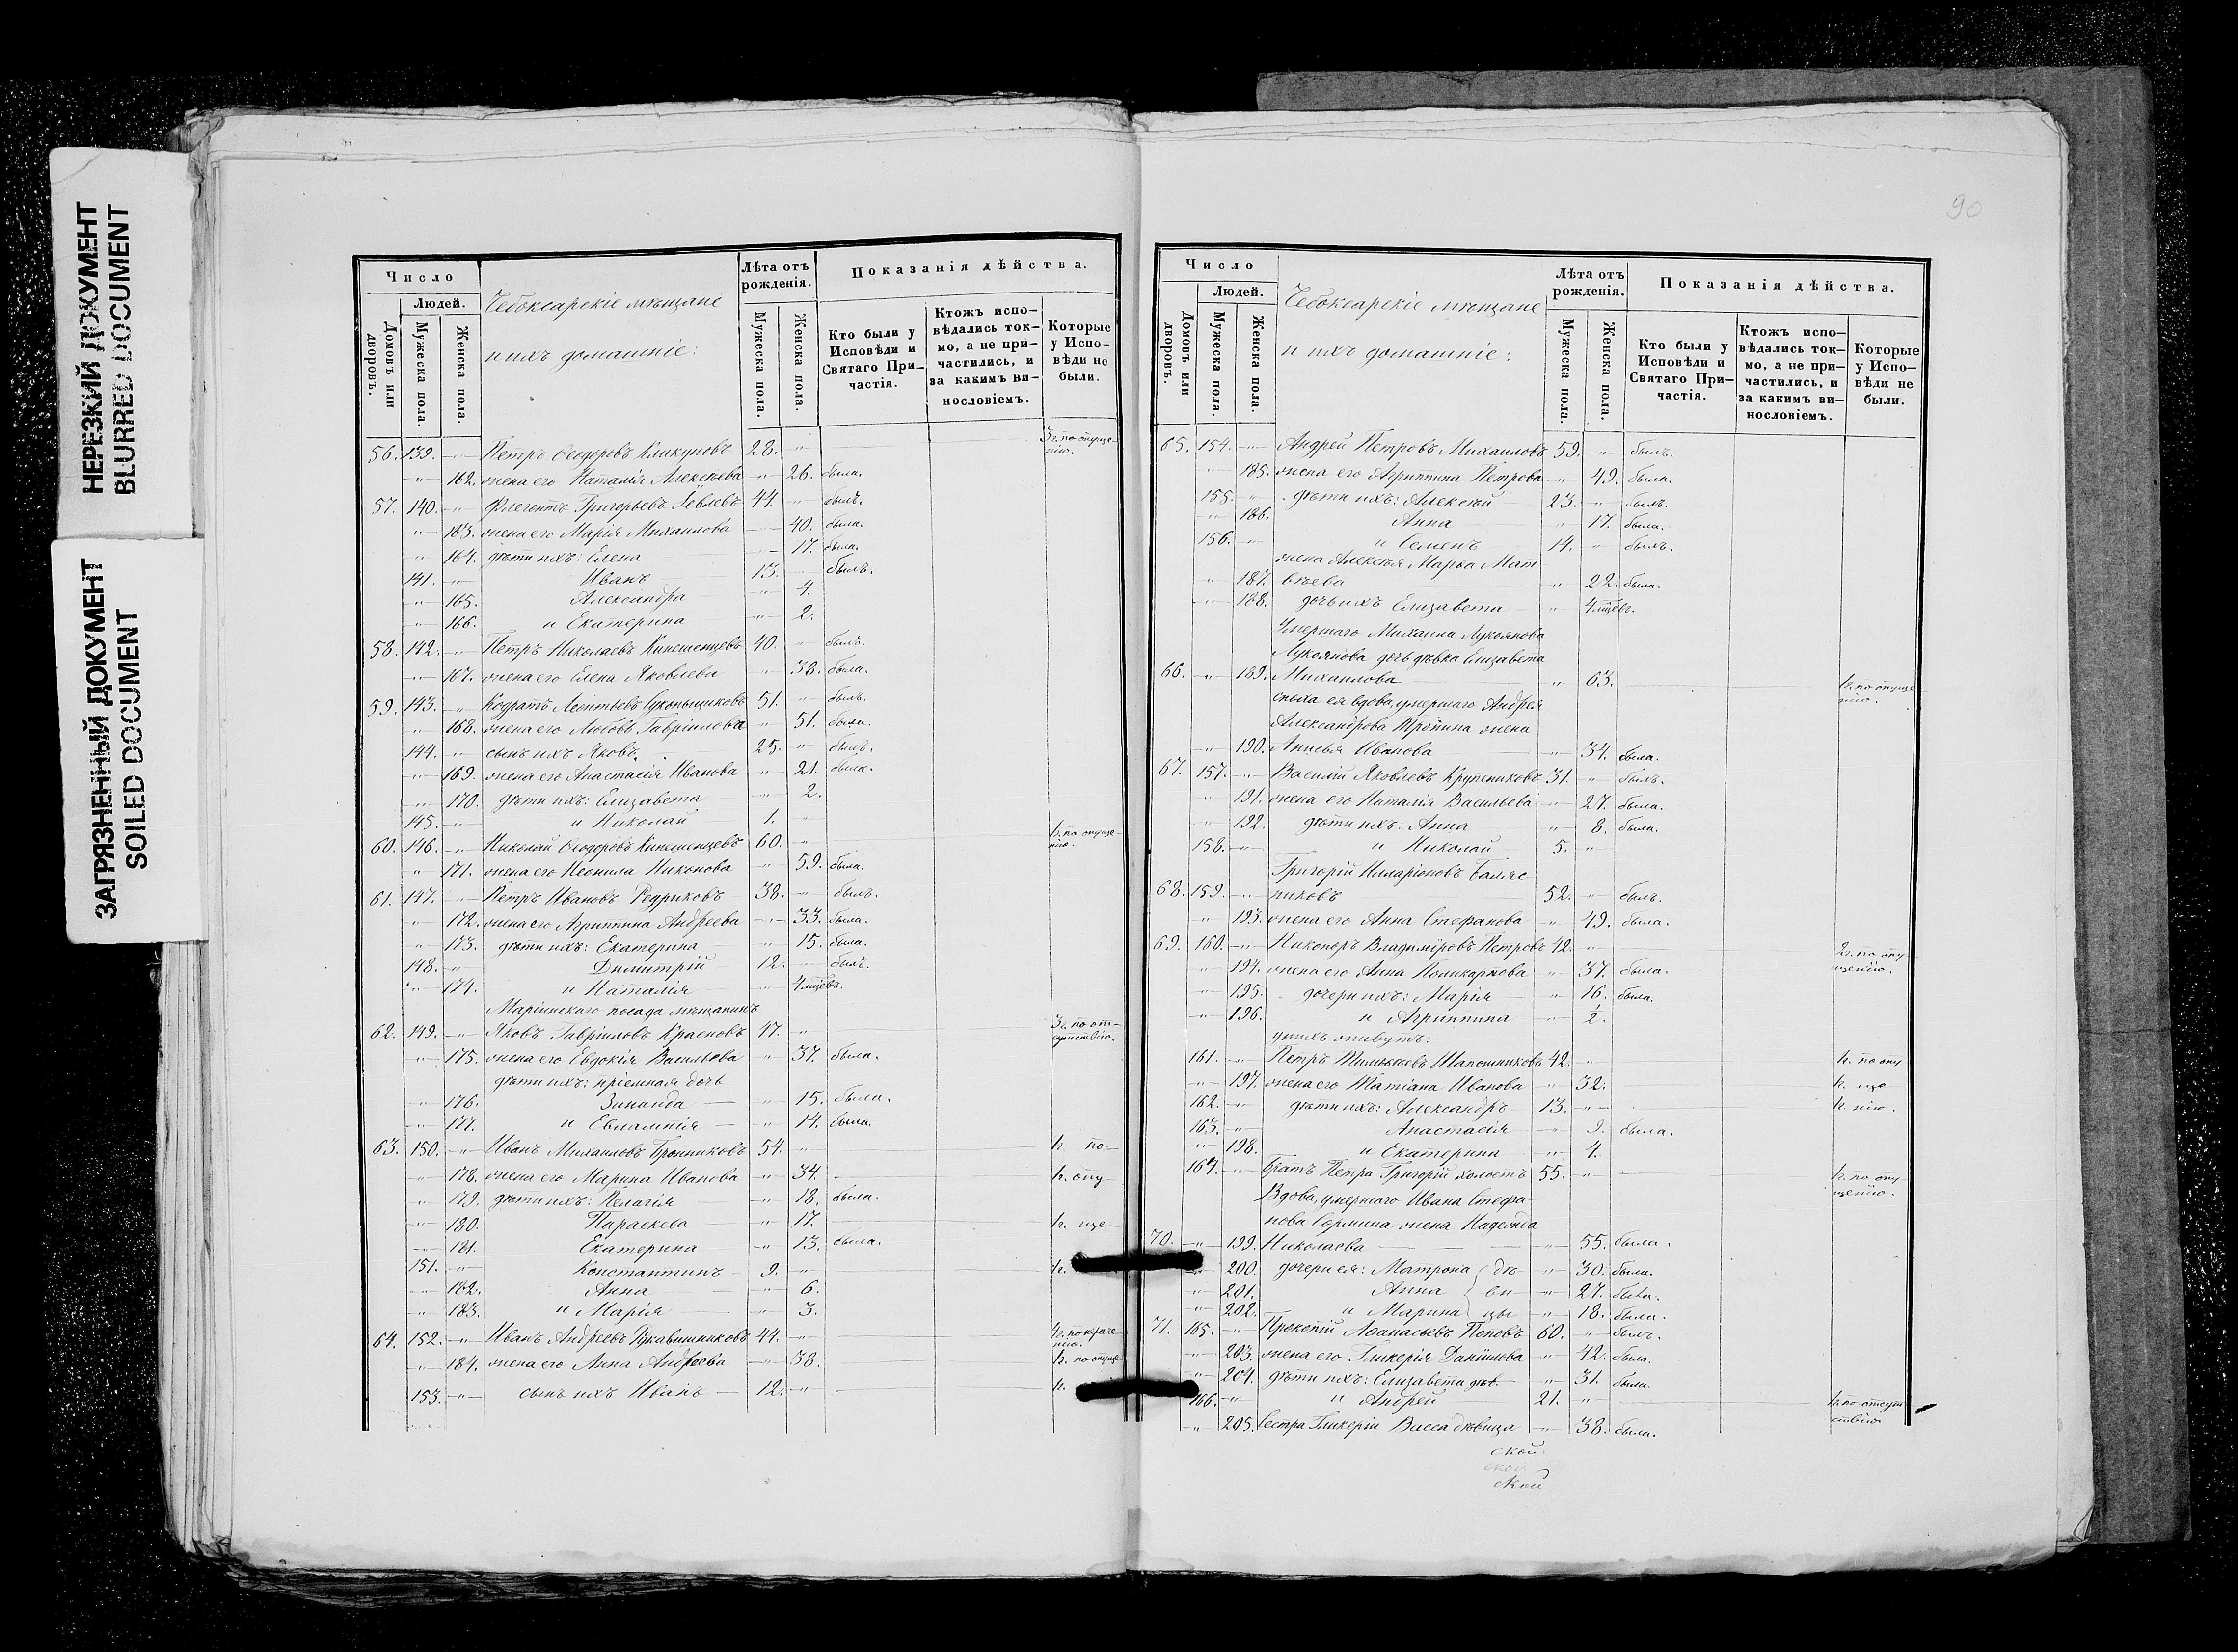 НЕРЕЗКИЙ ДОКУМЕНТ
BLURRED DOCUMENT
ЗАГРЯЗНЕННЫЙ ДОКУМЕНТ
SOILED DOCUMENT
Число
Людей.
Домовъ или дворовъ.
Мужеска пола.
Женска пола.
Чебоксарскіе мѣщане
и ихъ домашніе:
Лѣта отъ рожденія.
Мужеска пола.
Женска пола.
Показанія дѣйства.
Кто были у Исповѣди и Святаго Причастія.
Ктожъ исповѣдались токмо, а не причастились, и за какимъ винословіемъ.
Которые у Исповѣди не были.
56. 139. -"- Петръ Ѳеодоровъ Кликуновъ 28. " 3 г. по опущенію.
-"- 162. жена его Наталія Алексѣева -"- 26. была.
57. 140. -"- Флегонтъ Григорьевъ Іевлевъ 44. " былъ.
-"- 163. жена его Марія Михаилова -"- 40. была.
-"- 164. дѣти ихъ: Елена -"- 17. была.
141. -"- Иванъ 13. былъ.
-"- 165. Александра " 4.
-"- 166. и Екатерина -"- 2.
58. 142. -"- Петръ Николаевъ Кинешемцевъ 40. былъ.
-"- 167. жена его Елена Яковлева -"- 38. была.
59. 143. " Кодратъ Леонтьевъ 51. " былъ.
" 168. жена его Любовь Гавріилова " 51. была.
144. -"- сынъ ихъ Яковъ. 25. " былъ.
-"- 169. жена его Анастасія Иванова " 21. была.
-"- 170. дѣти ихъ: Елизавета -"- 2.
145. -"- и Николай 1. "
60. 146. -"- Николай Ѳеодоровъ Кинешемцевъ 60. -"- 1 г. по опущенію.
" 171. жена его Неонила Никонова " 59. была.
61. 147. -"- Петръ Ивановъ Редриковъ 38. -"- былъ.
-"- 172. жена его Агриппина Андреева -"- 33. была.
-"- 173. дѣти ихъ: Екатерина " 15. была.
148. -"- Димитрій 12. былъ.
-"- 174. и Наталія -"- 4 мцевъ.
Маріинскаго посада мѣщанинъ
62. 149. -"- Яковъ Гавріиловъ Красновъ 47. " 3 г. по отсутствію.
-"- 175. жена его Евдокія Васильева " 37. была.
дѣти ихъ: пріемная дочь
-"- 176. Зинаида " 15. была.
-"- 177. и Евлампія " 14. была.
63. 150. -"- Иванъ Михаиловъ Бронниковъ 54. " 1 г. по
" 178. жена его Марина Иванова " 34. 1 г. опу
" 179. дѣти ихъ: Пелагія " 18. была.
-"- 180. Параскева " 17. 1 г. ще
-"- 181. Екатерина -"- 13. была.
151. -"- Константинъ 9. " 1 г.
-"- 182. Анна -"- 6.
" 183. и Марія -"- 3.
64. 152. -"- Иванъ Андреевъ Рукавишниковъ 44. -"-
" 184. жена его Анна Андреева -"- 38. 1 г. по опуще
153. -"- сынъ ихъ Иванъ 12. -"- 1 г.
90
Число
Людей.
Домовъ или дворовъ.
Мужеска пола.
Женска пола.
Чебоксарскіе мѣщане
и ихъ домашніе:
Лѣта отъ рожденія.
Мужеска пола.
Женска пола.
Показанія дѣйства.
Кто были у Исповѣди и Святаго Причастія.
Ктожъ исповѣдались токмо, а не причастились, и за какимъ винословіемъ.
Которые у Исповѣди не были.
65. 154. -"- Андрей Петровъ Михаиловъ 59. -"- былъ.
-"- 185. жена его Агриппина Петрова -"- 49. была.
155. " дѣти ихъ: Алексѣй 23. " былъ.
-"- 186. Анна " 17. была.
156. -"- и Семенъ 14. " былъ.
жена Алексѣя Марья Мат
-"- 187. вѣева " 22. была.
-"- 188. дочь ихъ Елизавета " 4 мцевъ.
Умершаго Михаила Лукоянова
Лукоянова дочь дѣвка Елизавета
66. -"- 189. Михаилова " 63. 1 г. по опущенію.
сноха ея вдова, умершаго Андрея
Александрова Тронина жена
-"- 190. Анисья Иванова -"- 34. была.
67. 157. -"- Василій Яковлевъ Крупениковъ 31. " былъ.
-"- 191. жена его Наталія Васильева -"- 27. была.
-"- 192. дѣти ихъ: Анна -"- 8. была.
158. -"- и Николай 5. "
Григорій Иларіоновъ Баляс
68. 159. " никовъ 52. " былъ.
" 193. жена его Анна Стефанова " 49. была.
69. 160. -"- Никоноръ Владиміровъ Петровъ 42. " 2 г. по опущенію.
-"- 194. жена его Анна Поликарпова " 37. была.
-"- 195. дочери ихъ: Марія " 16. была.
-"- 196. и Агриппина -"- 2.
у нихъ живутъ:
161. -"- Петръ Тимоѳеевъ Шапошниковъ 42. " 1 г. по опу
-"- 197. жена его Татіана Иванова " 32. 1 г. ще
162. -"- дѣти ихъ: Александръ 13. -"- 1 г. нію.
163. -"- Анастасія -"- 9. была.
-"- 198. и Екатерина -"- 4.
164. -"- Братъ Петра Григорій холостъ 55. -"- 1 г. по опущенію.
Вдова, умершаго Ивана Стефа
нова Сормина жена Надежда
70. -"- 199. Николаева -"- 55. была.
-"- 200. дочери ея: Матрона дѣ -"- 30. была.
" 201. Анна ви " 27. была.
" 202. и Марина цы " 18. была.
71. 165. -"- Прокопій Аѳанасьевъ Поповъ 60. " былъ.
-"- 203. жена его Гликерія Даніилова -"- 42. была.
-"- 204. дѣти ихъ: Елизавета дѣв. -"- 31. была.
166. -"- и Андрей 21. " 1 г. по отсутствію.
-"- 205. Сестра Гликеріи Васса дѣвица -"- 38. была.
ской
ской
ской